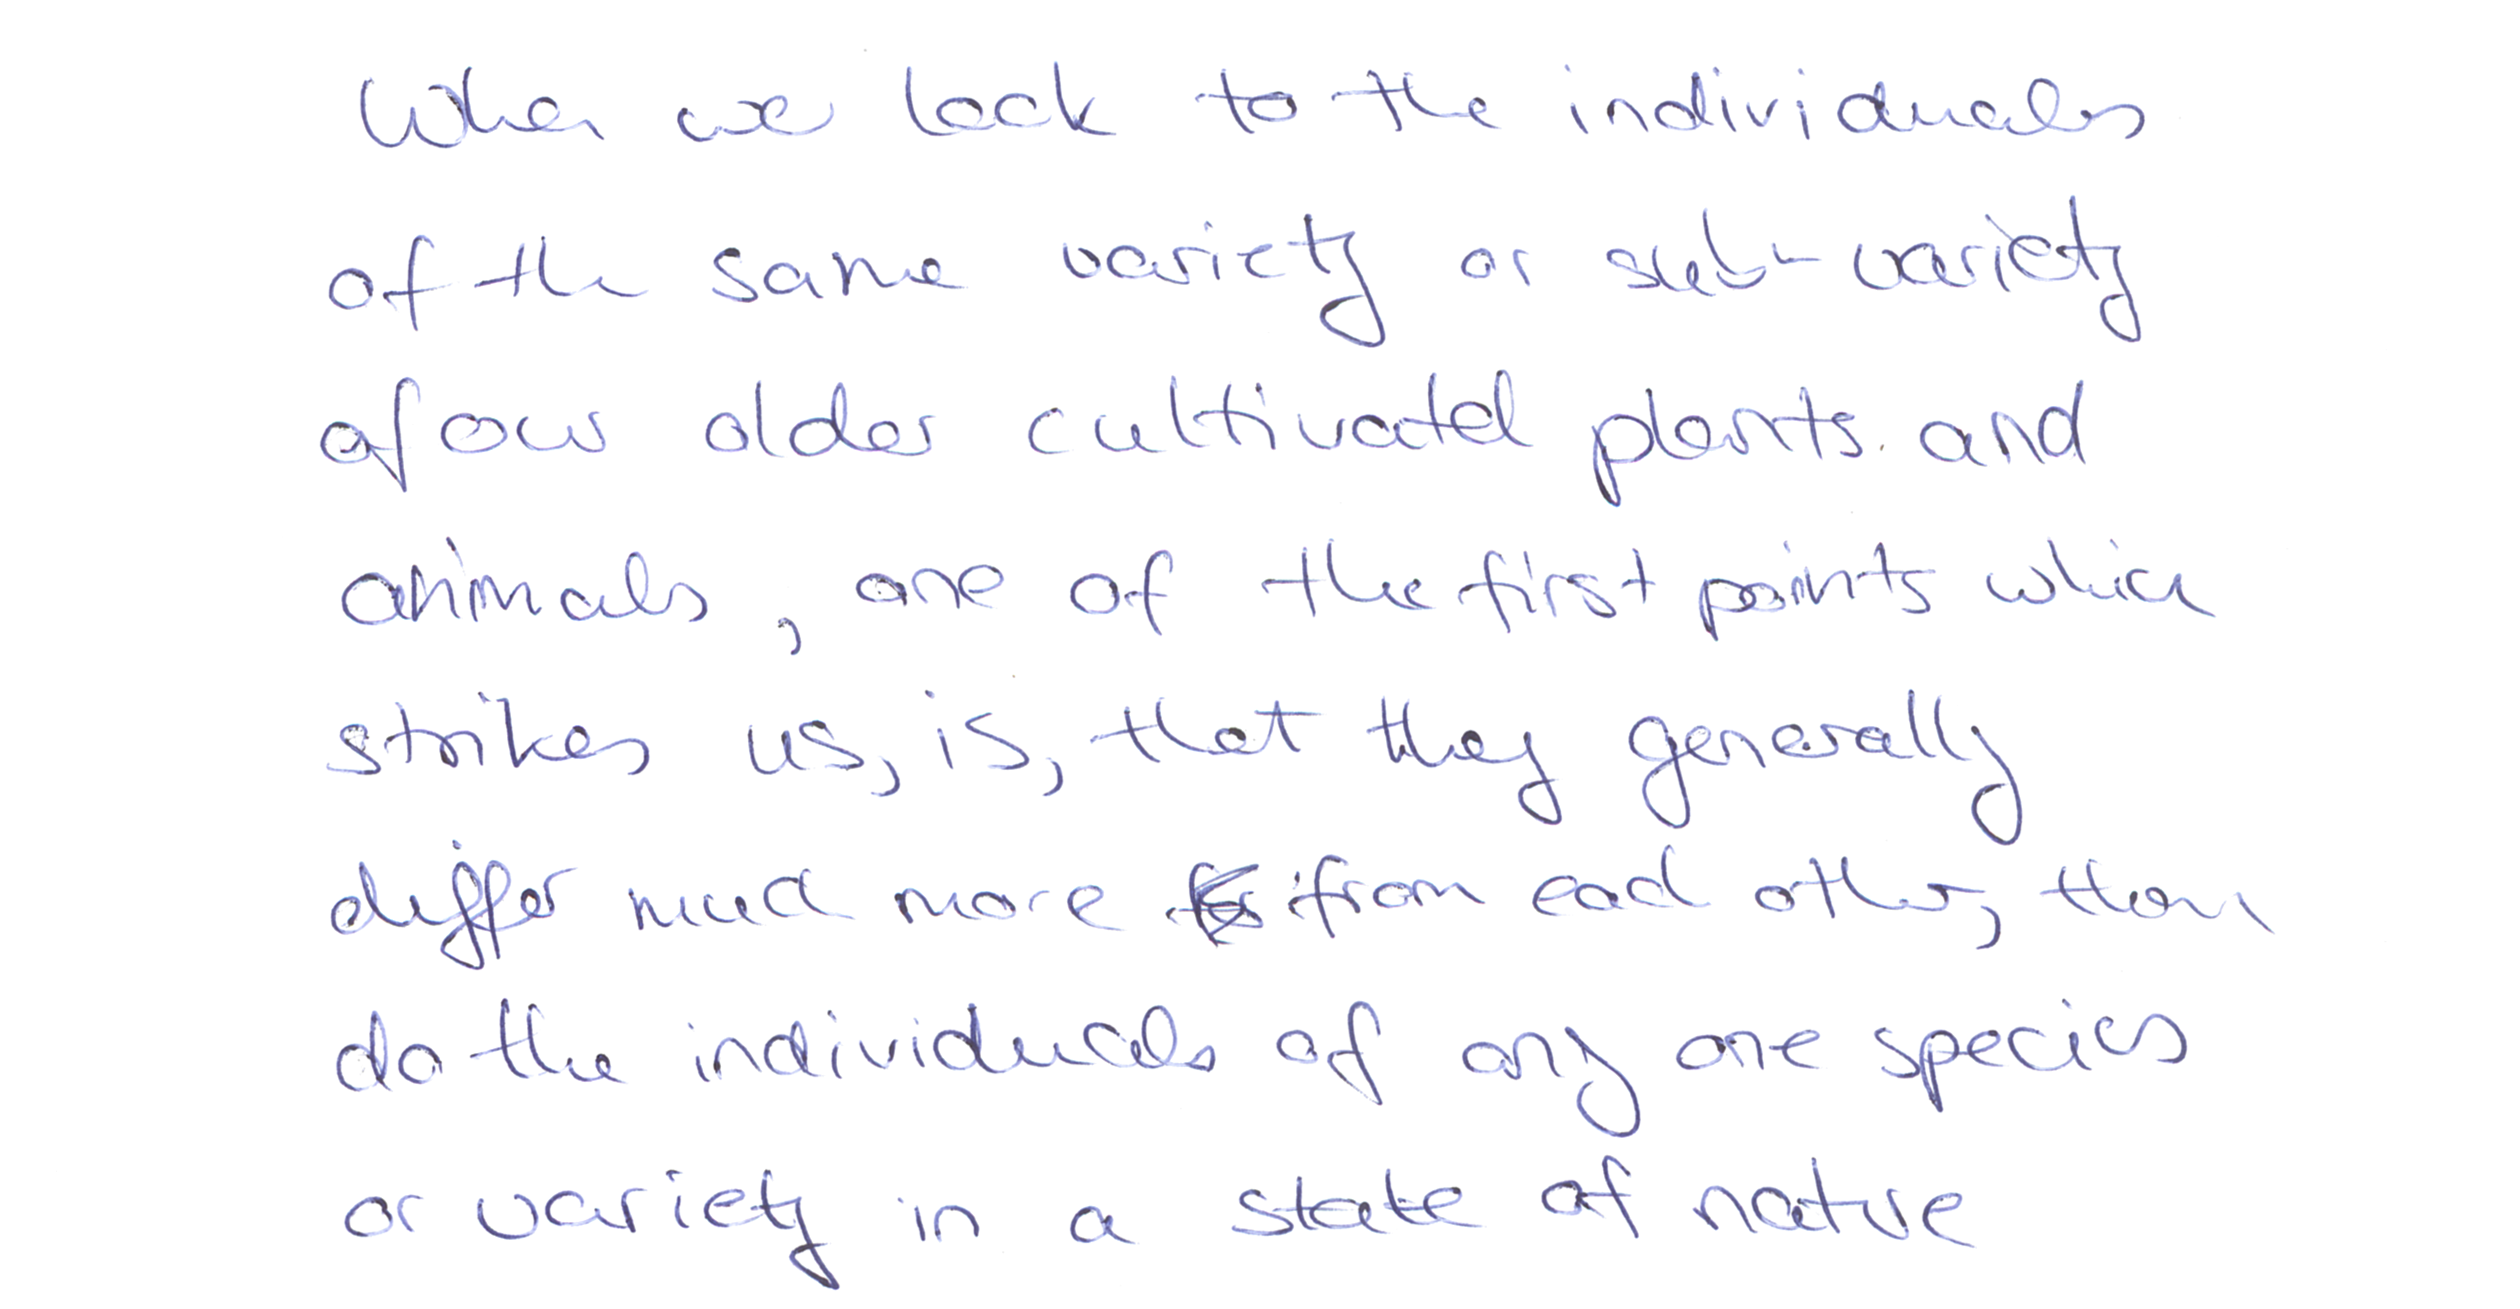 When we look to the individuals
of the same variety or sub-variety
of our older cultivated plants and
animals, one of the first points which
strikes us, is, that they generally
differ much more from each other, than
do the individuals of any one species
or variety in a state of nature